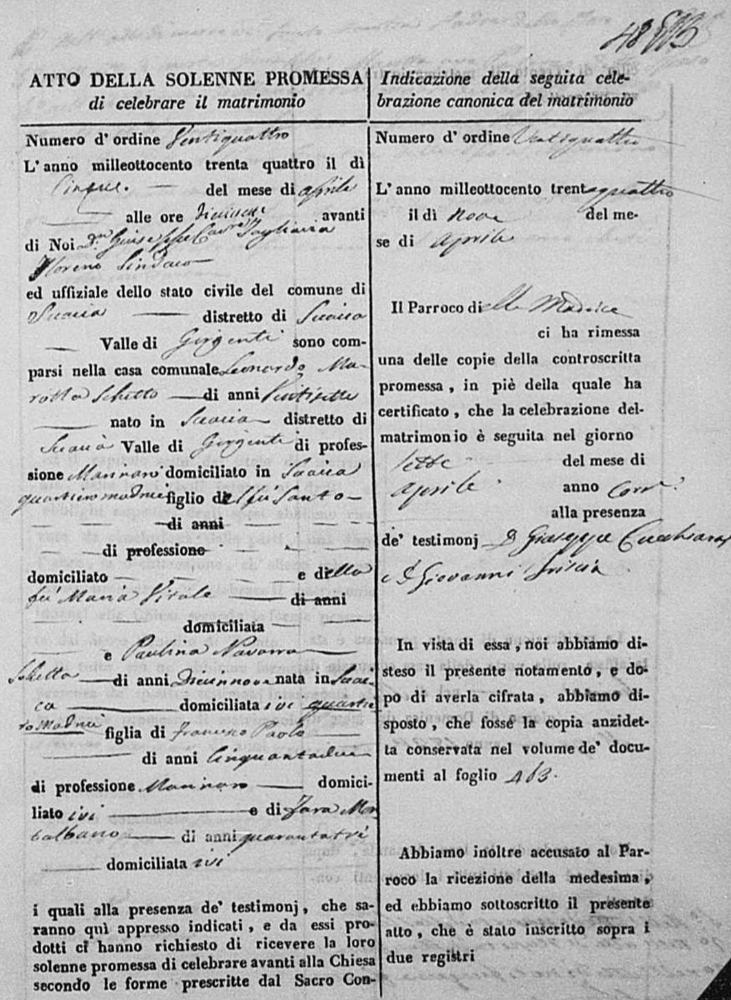 48
ATTO DELLA SOLENNE PROMESSA
di celebrare il matrimonio
Numero d' ordine Ventiquattro
L' anno milleottocento trenta quattro il dì
Cinque. — del mese di aprile
— alle ore diciasette avanti
di Noi Dn Giuseppe Cavre Tagliavia
Floreno Sindaco
ed uffiziale dello stato civile del comune di
Sciacca — distretto di Sciacca
— Valle di Girgenti sono com-
parsi nella casa comunale Leonardo Ma-
rotta Schetto — di anni Ventisette
— nato in Sciacca distretto di
Sciacca Valle di Girgenti di profes-
sione Marinaro domiciliato in Sciacca
quartiero madrice figlio del fù Santo —
— di anni —
— di professione —
domiciliato — e della
fù Maria Vitale — di anni
— domiciliata —
— e Paulina Navarra —
Schetta — di anni Diciinnove nata in Sciac-
ca — domiciliata ivi quartie
ro madrice figlia di Francesco Paolo —
— di anni Cinquantadue
di professione Marinaro — domici-
liato ivi — e di Zara Mon
talbano — di anni quarantatrè
— domiciliata ivi
i quali alla presenza de' testimonj, che sa-
ranno quì appresso indicati, e da essi pro-
dotti ci hanno richiesto di ricevere la loro
solenne promessa di celebrare avanti alla Chiesa
secondo le forme prescritte dal Sacro Con-
Indicazione della seguita cele-
brazione canonica del matrimonio
Numero d' ordine Ventiquattro
L' anno milleottocento trentaquattro
il dì nove del me-
se di aprile
Il Parroco della Madrice
ci ha rimessa
una delle copie della controscritta
promessa, in piè della quale ha
certificato, che la celebrazione del-
matrimonio è seguita nel giorno
sette del mese di
aprile anno Corre.
alla presenza
de' testimonj D. Giuseppe Cucchiara
e D. Giovanni
In vista di essa, noi abbiamo di-
steso il presente notamento, e do-
po di averla cifrata, abbiamo di-
sposto, che fosse la copia anzidet-
ta conservata nel volume de' docu-
menti al foglio 463.
Abbiamo inoltre accusato al Par-
roco la ricezione della medesima,
ed ebbiamo sottoscritto il presente
atto, che è stato inscritto sopra i
due registri